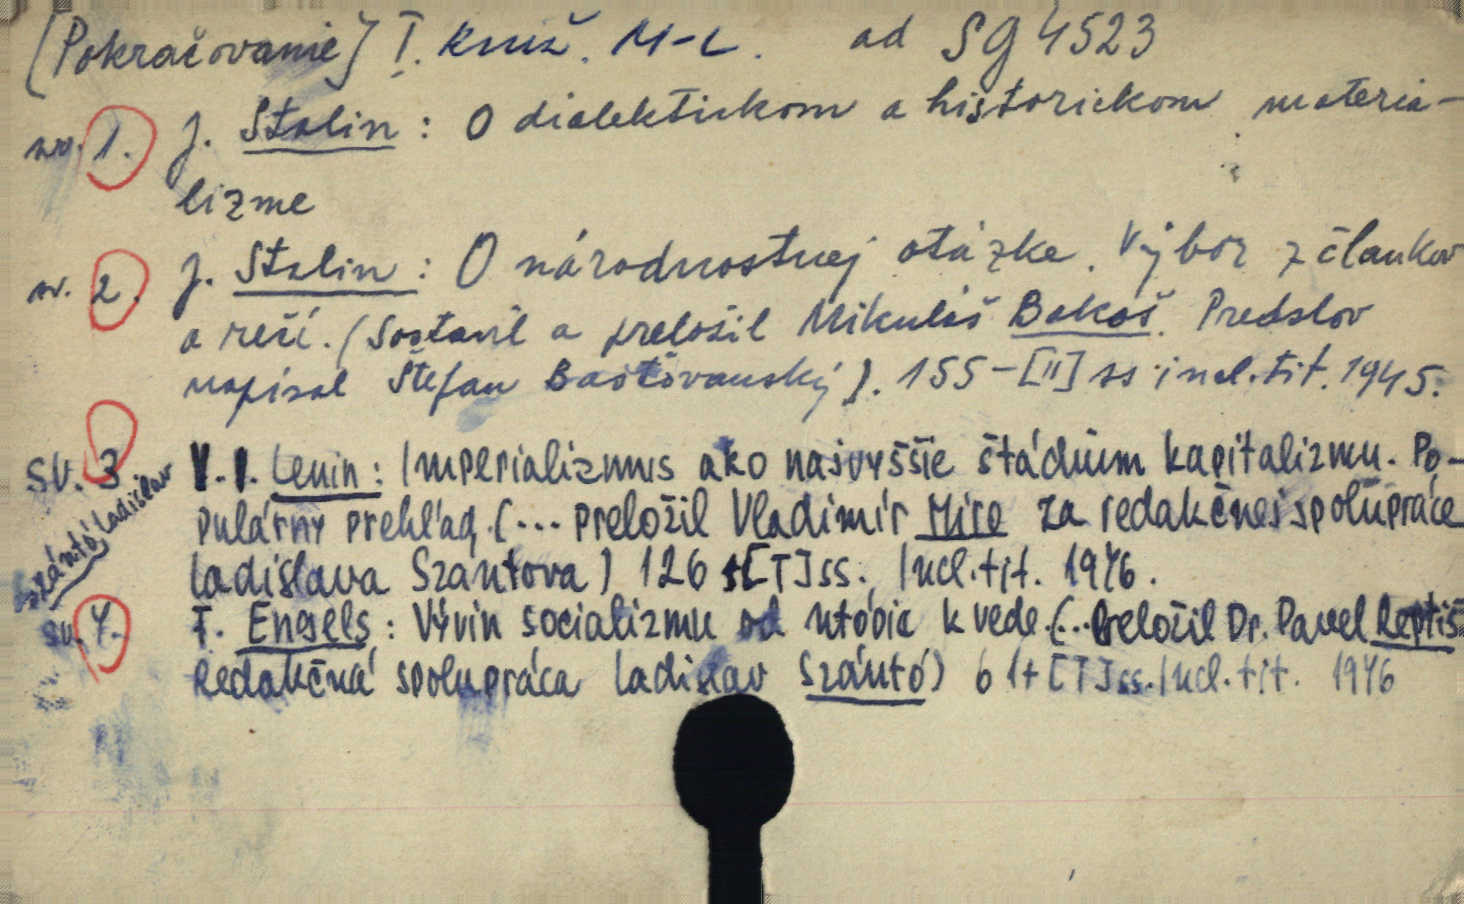 [Pokračovanie] I. Kniž. M-L. ad SG 4523
sv. 1. J. Stalin : O dialektickom a historickom materia-
lizme
sv. 2. J. Stalin : O národnostnej otázke. Výbor z článkov
a rečí. (Sostavil a preložil Mikuláš Bakoš. Predslov
napísal Štefan Baštovanský). 155-[II] ss incl. tit. 1945.
sv. 3 V. I. Lenin : Imperializmus ako najvyššie štádium kapitalizmu. Po-
pulárny prehľad. (... preložil Vladimír Miro za redakčnej spolupráce
Szántó, Ladislav
Ladislava Szantova) 126 +[I] ss. Incl. tit. 1946.
sv. 4. F. Engels : Vývin socializmu od utópie k vede. (.. Preložil Dr. Pavel Reptiš
Redakčná spolupráca Ladislav Szántó) 61+[I] ss. Incl. tit. 1946